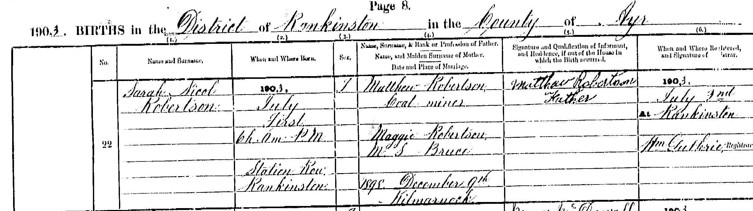 Page 8.
1903. BIRTHS in the District of Rankinston in the County of Ayr
(1.) (2.) (3.) (4.) (5.) (6.)
No. Name and Surname. When and Where Born. Sex. Name, Surname, & Rank or Profession of Father. Name, and Maiden Surname of Mother. Date and Place of Marriage. Signature and Qualification of Informant, and Residence, if out of the House in which the Birth occurred. When and Where Registered, and Signature of
22
Sarah Nicol
Robertson
1903,
July
First
6h. 0m. P.M.
Station Row
Rankinston
F
Matthew Robertson,
Coal miner
Maggie Robertson,
M. S. Bruce
1898, December 9th
Kilmarnock
Matthew Robertson
Father
1903,
July
At Rankinston
Wm Guthrie, Registrar
1903